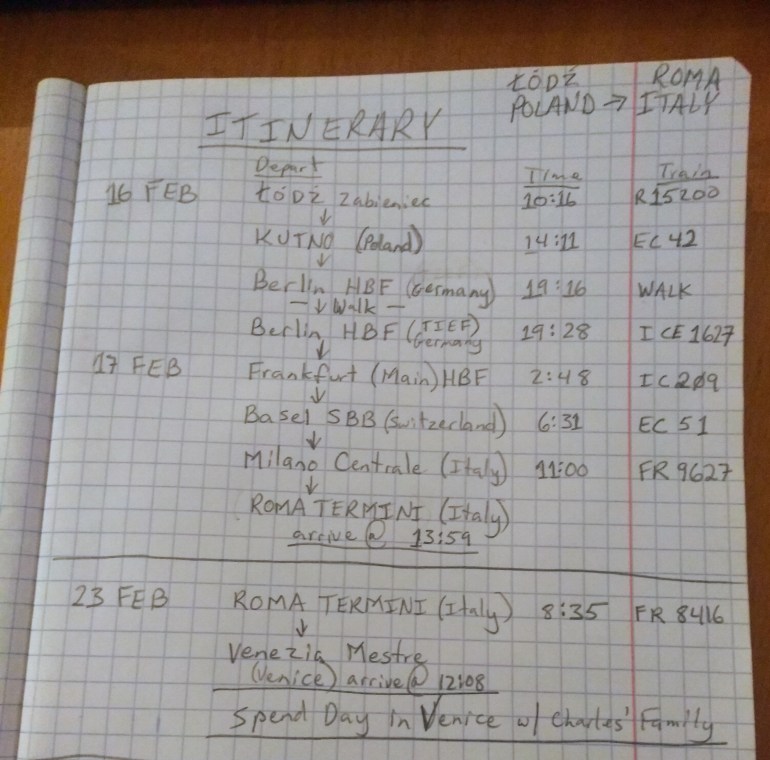 ŁÓDŹ ROMA
POLAND → ITALY
ITINERARY
Depart Time Train
16 FEB ŁÓDŹ Żabieniec 10:16 R15200
↓
KUTNO (Poland) 14:11 EC 42
↓
Berlin HBF (Germany) 19:16 WALK
— ↓ Walk —
Berlin HBF (TIEF) Germany 19:28 ICE 1627
↓
17 FEB Frankfurt (Main) HBF 2:48 IC 209
↓
Basel SBB (Switzerland) 6:31 EC 51
↓
Milano Centrale (Italy) 11:00 FR 9627
↓
ROMA TERMINI (Italy)
arrive @ 13:59
23 FEB ROMA TERMINI (Italy) 8:35 FR 8416
↓
Venezia Mestre
(Venice) arrive @ 12:08
Spend Day in Venice w/ Charles' Family